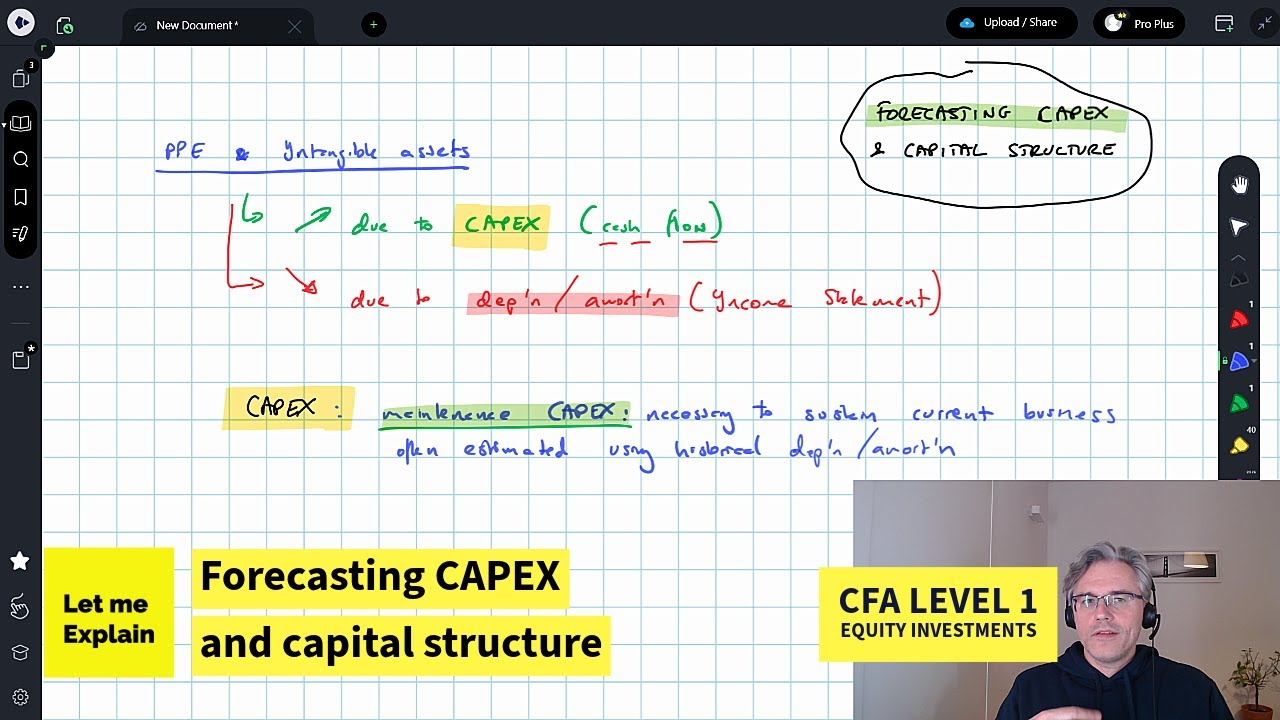 New Document *
+
Upload / Share
Pro Plus
3
FORECASTING CAPEX
& CAPITAL STRUCTURE
PPE & Intangible assets
due to CAPEX (cash flow)
due to dep'n / amort'n (Income Statement)
CAPEX : maintenance CAPEX : necessary to sustain current business
often estimated using historical dep'n / amort'n
1
1
1
40
Let me
Explain
Forecasting CAPEX
and capital structure
CFA LEVEL 1
EQUITY INVESTMENTS